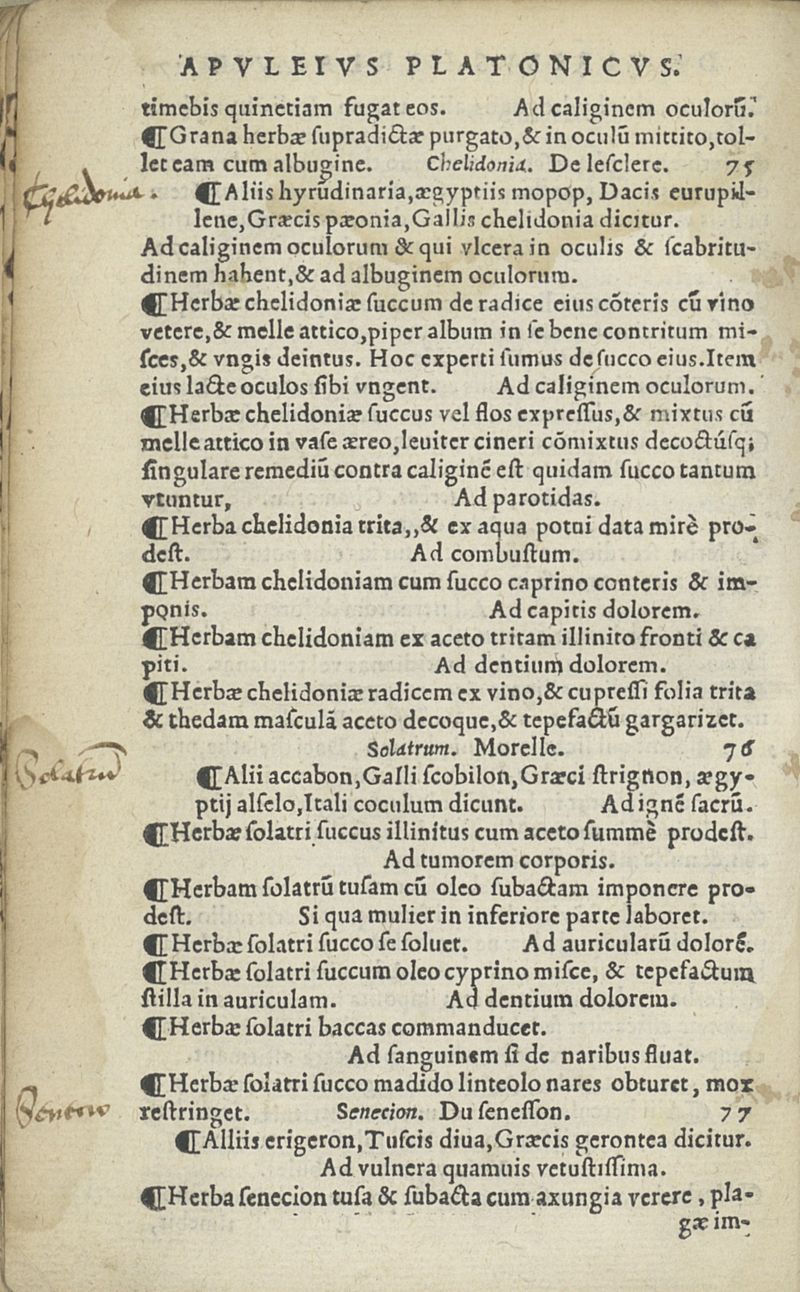 APVLEIVS PLATONICVS.
timebis quinetiam fugat eos. Ad caliginem oculorū.
¶Grana herbæ ſupradictæ purgato,& in oculū mittito,tol-
let eam cum albugine. Chelidonia. De leſclere. 75
Chelidonia.
¶Aliis hyrūdinaria,ægyptiis mopop, Dacis eurupil-
lene,Græcis pæonia,Gallis chelidonia dicitur.
Ad caliginem oculorum & qui vlcera in oculis & ſcabritu-
dinem hahent,& ad albuginem oculorum.
¶Herbæ chelidoniæ ſuccum de radice eius cōteris cū vino
vetere,& melle attico,piper album in ſe bene contritum mi-
ſces,& vngis deintus. Hoc experti ſumus de ſucco eius.Item
eius lacte oculos ſibi vngent. Ad caliginem oculorum.
¶Herbæ chelidoniæ ſuccus vel flos expreſſus,& mixtus cū
melle attico in vaſe æreo,leuiter cineri cōmixtus decoctúſq;
ſingulare remediū contra caliginē eſt quidam ſucco tantum
vtuntur, Ad parotidas.
¶Herba chelidonia trita,,& ex aqua potui data mirè pro-
deſt. Ad combuſtum.
¶Herbam chelidoniam cum ſucco caprino conteris & im-
ponis. Ad capitis dolorem.
¶Herbam chelidoniam ex aceto tritam illinito fronti & ca
piti. Ad dentium dolorem.
¶Herbæ chelidoniæ radicem ex vino,& cupreſſi folia trita
& thedam maſculā aceto decoque,& tepefactū gargarizet.
Solatrum. Morelle. 76
Solatrū
¶Alii accabon,Galli ſcobilon,Græci ſtrignon, ægy-
ptij alſelo,Itali coculum dicunt. Ad ignē ſacrū.
¶Herbæ ſolatri ſuccus illinitus cum aceto ſummè prodeſt.
Ad tumorem corporis.
¶Herbam ſolatrū tuſam cū oleo ſubactam imponere pro-
deſt. Si qua mulier in inferiore parte laboret.
¶Herbæ ſolatri ſucco ſe ſoluet. Ad auricularū dolorē.
¶Herbæ ſolatri ſuccum oleo cyprino miſce, & tepefactum
ſtilla in auriculam. Ad dentium dolorem.
¶Herbæ ſolatri baccas commanducet.
Ad ſanguinem ſi de naribus fluat.
¶Herbæ ſolatri ſucco madido linteolo nares obturet, mox
reſtringet. Senecion. Du ſeneſſon. 77
¶Alliis erigeron,Tuſcis diua,Græcis gerontea dicitur.
Ad vulnera quamuis vetuſtiſſima.
¶Herba ſenecion tuſa & ſubacta cum axungia verere, pla-
gæ im-